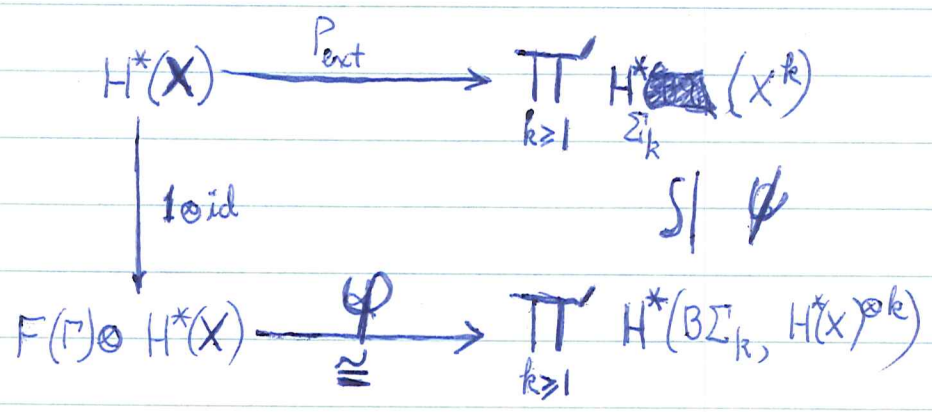 H*(X) P_ext ∏′_{k⩾1} H*_{Σ_k} (X^k)
1⊗id ∫| ψ
F(Γ)⊗ H*(X) φ ≅ ∏′_{k⩾1} H*(BΣ_k, H*(X)^{⊗k})